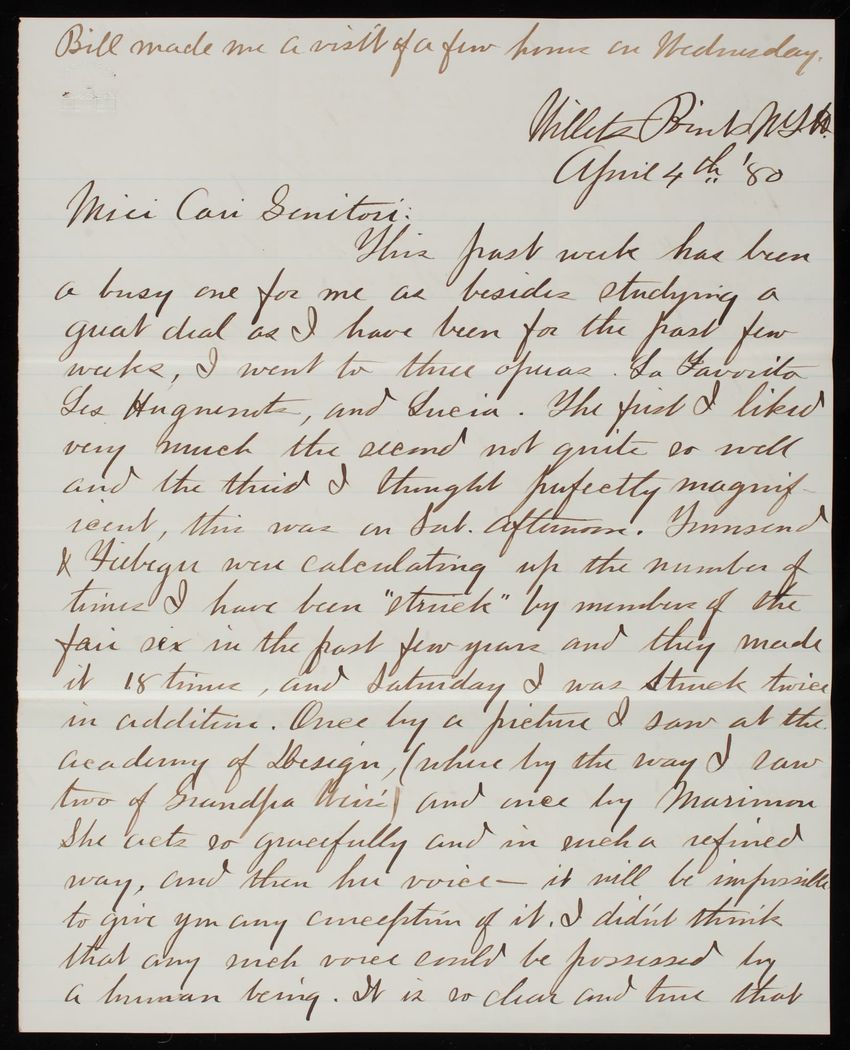 Bill made me a visit of a few hours on Wednesday.
Willets Point N.Y.H.
April 4th '80
Miei Cari Genitori:
This past week has been
a busy one for me as besides studying a
great deal as I have been for the past few
weeks, I went to three operas. La Favorita
Les Hugnenots, and Lucia. The first I liked
very much the second not quite so well
and the third I thought perfectly magnif-
icent, this was on Sat. afternoon. Townsend
& Fiebeger were calculating up the number of
times I have been "struck" by members of the
fair sex in the past few years and they made
it 18 times, and Saturday I was struck twice
in addition. Once by a picture I saw at the
academy of Design, (where by the way I saw
two of Grandpa Weir's) and once by Marimon
She acts so gracefully and in such a refined
way, and then her voice - it will be impossible
to give you any conception of it. I didn't think
that any such voice could be possessed by
a human being. It is so clear and true that